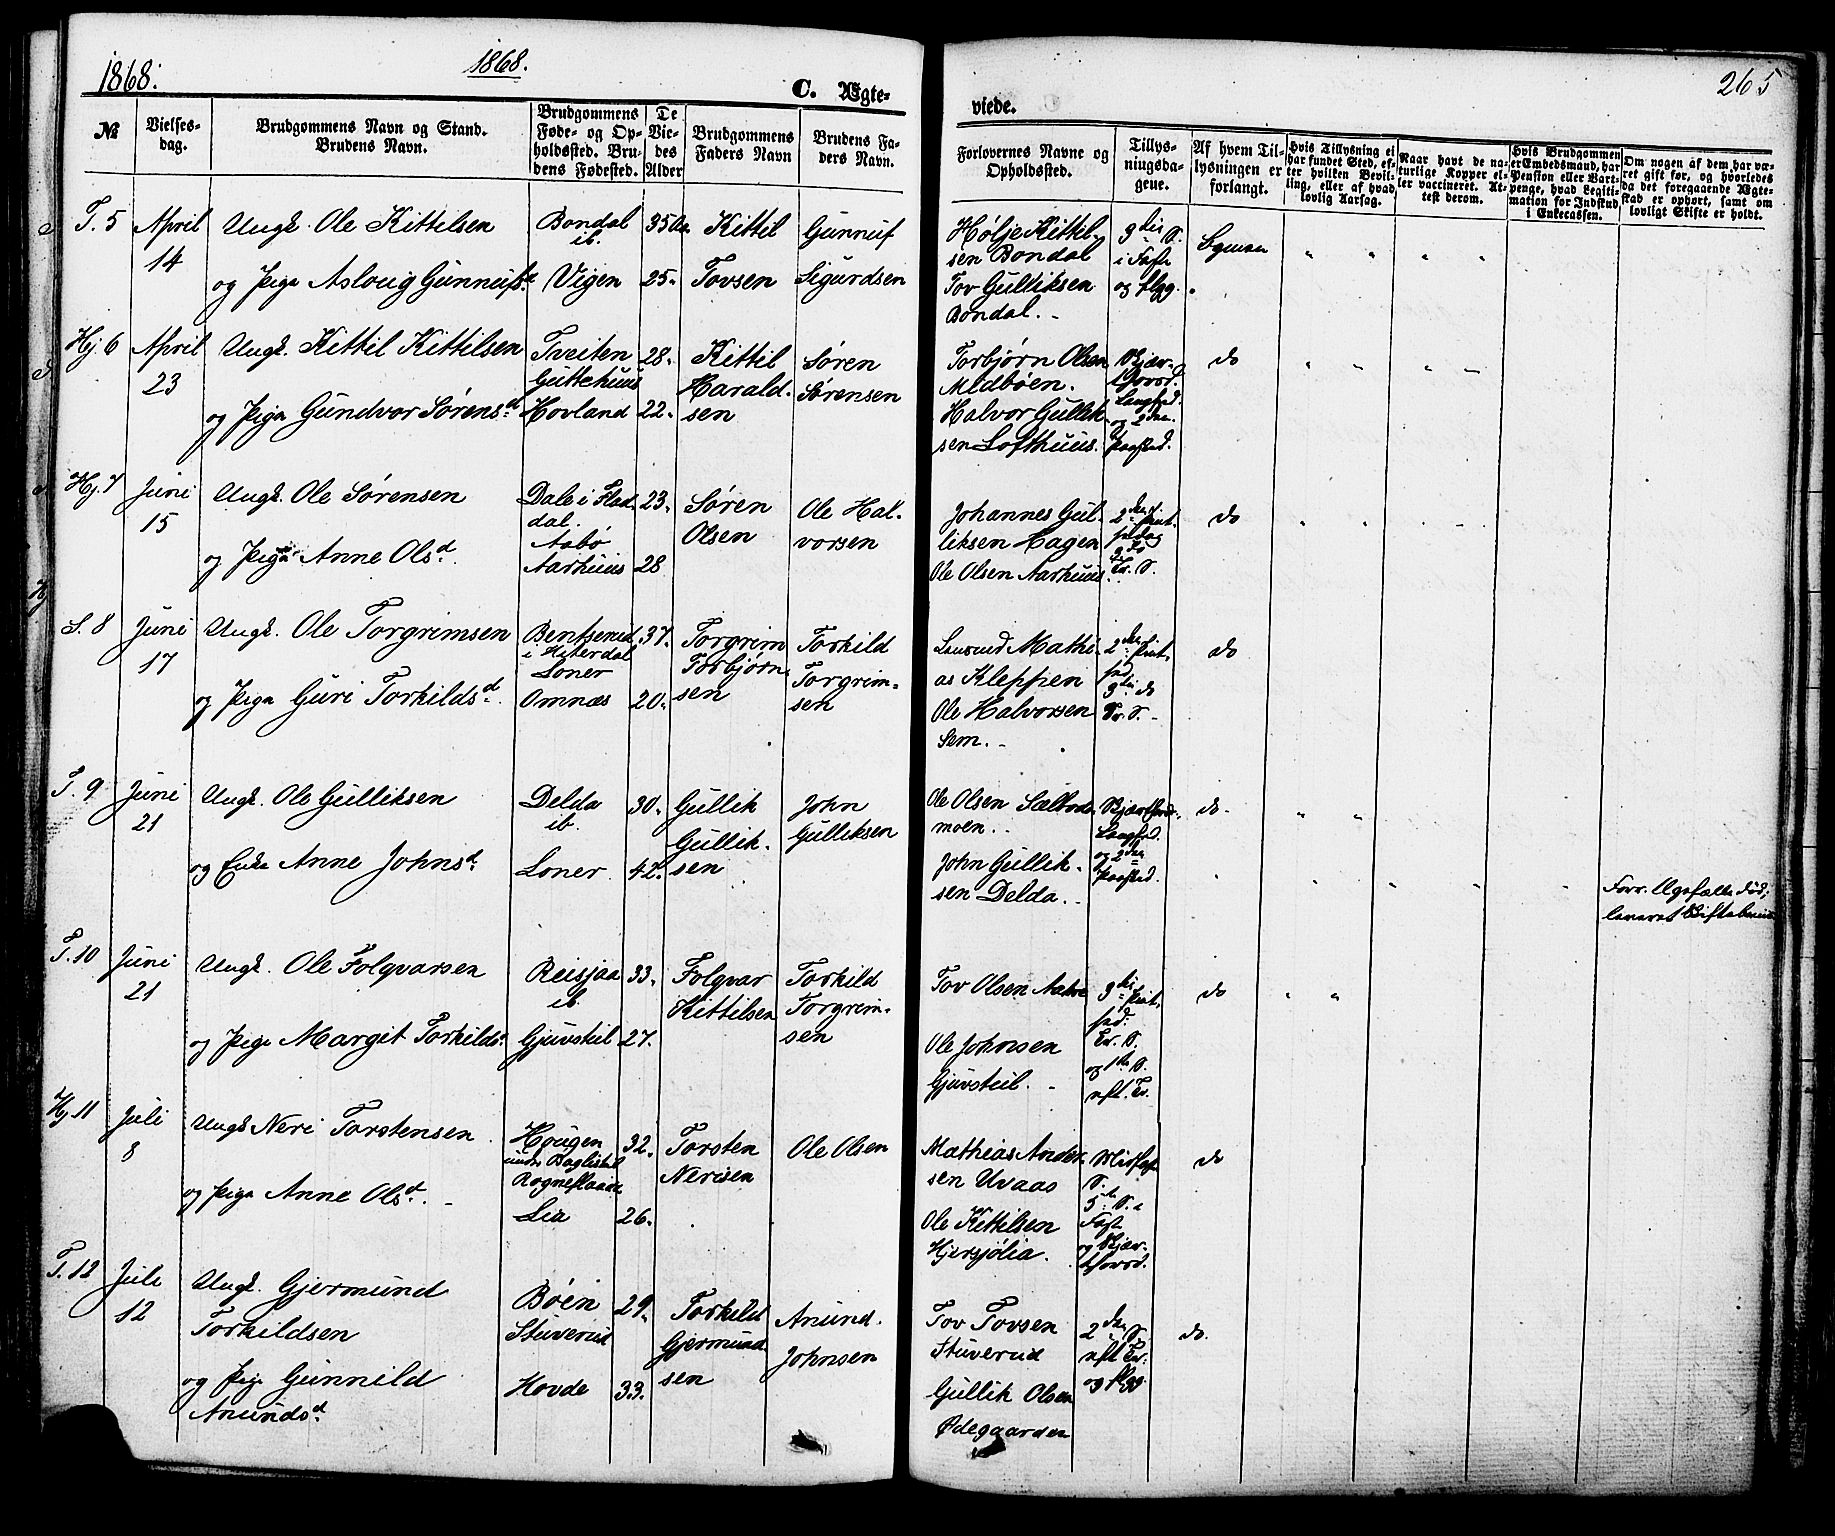 1868.
1868.
C. Ægte-
viede.
265
№
Vielses-
dag.
Brudgommens Navn og Stand.
Brudens Navn.
Brudgommens
Føde- og Op-
holdssted. Bru-
dens Fødested.
De
Vie-
des
Alder
Brudgommens
Faders Navn
Brudens Fa-
ders Navn.
Forlovernes Navne og
Opholdssted.
Tillys-
ningsda-
gene.
Af hvem Til-
lysningen er
forlangt.
Hvis Tillysning ei
har fundet Sted, ef-
ter hvilken Bevil-
ling, eller af hvad
lovlig Aarsag.
Naar havt de na-
turlige Kopper el-
ler vaccineret. At-
test derom.
Hvis Brudgommen
er Embedsmand, har
Pension eller Vart-
penge, hvad Legiti-
mation for Indskud
i Enkecassen.
Om nogen af dem har væ-
ret gift før, og hvorledes
da det foregaaende Ægte-
skab er ophørt, samt om
lovligt Skifte er holdt.
T. 5
April
14
Ungk. Ole Kittilsen
og Pige Asloug Gunnufsd.
Bondal
ib.
Vigen
35
25
Kittil
Tovsen
Gunnuf
Sigurdsen
Hølje Kittil-
sen Bondal
Tov Gulliksen
Bondal.
3die S.
i Faste
og flgg.
Hj. 6
April
23
Ungk. Kittil Kittilsen
og Pige Gundvor Sørensd.
Tveiten
Guttehuus
Hovland
28
22
Kittil
Harald-
sen
Søren
Sørensen
Torbjørn Olsen
Medbøen.
Halvor Gullik-
sen Lofthuus.
do
Hj. 7
Juni
15
Ungk. Ole Sørensen
og Pige Anne Olsd.
Dale i Flad-
dal.
Aabø
Aarhuus
23
28
Søren
Olsen
Ole Hal-
vorsen
Johannes Gul-
liksen Hagen
Ole Olsen Aarhuus.
do
S. 8
Juni
17
Ungk. Ole Torgrimsen
og Pige Guri Torkildsd.
Bentserud
i Hiterdal
Loner
Omnæs
37
20
Torgrim
Torbjørn-
sen
Torkild
Torgrim-
sen
Mathi-
as Kleppen
Ole Halvorsen
Sem.
do
T. 9
Juni
21
Ungk. Ole Gulliksen
og Enke Anne Johnsd.
Delda
ib.
Loner
30
42
Gullik
Gullik-
sen
John
Gulliksen
Ole Olsen
moen.
John Gullik-
sen Delda.
do
T. 10
Juni
21
Ungk. Ole Folqvarsen
og Pige Margit Torkildsd.
Reisjaa
ib.
Gjuvsteil
33
27
Folqvar
Kittilsen
Torkild
Torgrim-
sen
Tov Olsen
Ole Johnsen
Gjuvsteil.
do
Hj. 11
Juli
8
Ungk Neri Torstensen
og Pige Anne Olsd.
Haugen
Lia
32
26
Torsten
Nerisen
Ole Olsen
Mathias Ander-
sen Uvaas
Ole Kittilsen
Hjersjølia.
do
T. 12
Juli
12
Ungk. Gjermund
Torkildsen
og Pige Gunnild
Anundsd.
Bøen
Stuverud
Hovde
29
33
Torkild
Gjermund-
sen
Anund
Johnsen
Tov Tovsen
Stuverud
Gullik Olsen
Ødegaarden
2den S.
eft. Tr.
og flgg.
do